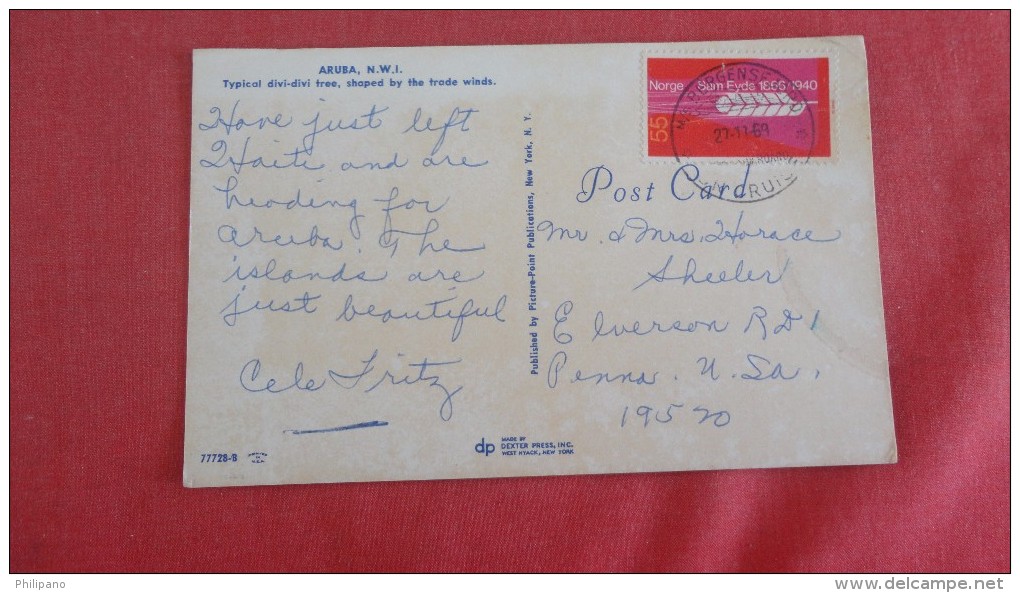 ARUBA, N.W.I.
Typical divi-divi tree, shaped by the trade winds.
Have just left
Haiti and are
heading for
Aruba. The
islands are
just beautiful
Cele Fritz
77728-B
Published by Picture-Point Publications, New York, N. Y.
dp
MADE BY
DEXTER PRESS, INC.
WEST NYACK, NEW YORK
Norge Sam Eyde 1866 1940
55
27-11-69
CRUISE
Post Card
Mr. & Mrs. Horace
Sheeler
Elverson RD 1
Penna. U.Sa.
19520
Philipano
www.delcampe.net